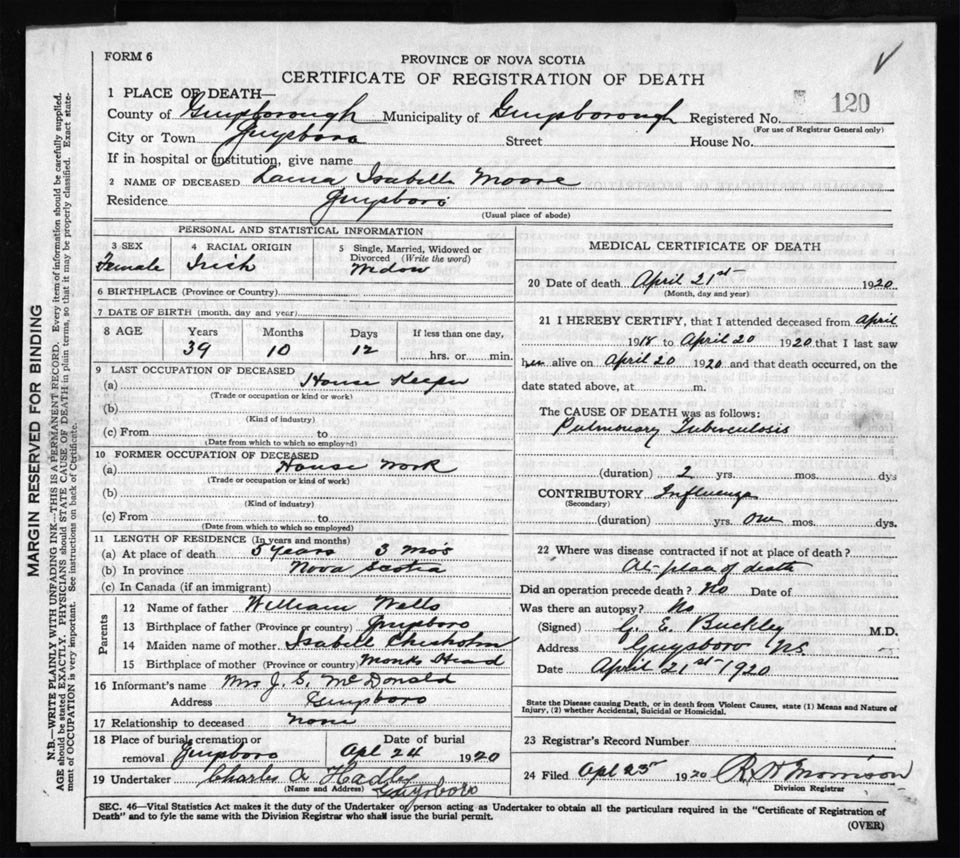 FORM 6
PROVINCE OF NOVA SCOTIA
CERTIFICATE OF REGISTRATION OF DEATH
1 PLACE OF DEATH—
County of Guysborough Municipality of Guysborough Registered No. 120
(For use of Registrar General only)
City or Town Guysboro Street House No.
If in hospital or institution, give name
2 NAME OF DECEASED Laura Isabella Moore
Residence Guysboro
(Usual place of abode)
PERSONAL AND STATISTICAL INFORMATION
3 SEX 4 RACIAL ORIGIN 5 Single, Married, Widowed or
Divorced (Write the word)
Female Irish Widow
6 BIRTHPLACE (Province or Country)
7 DATE OF BIRTH (month, day and year)
8 AGE Years Months Days If less than one day,
39 10 12 hrs. or min.
9 LAST OCCUPATION OF DECEASED
(a) House Keeper
(Trade or occupation or kind or work)
(b)
(Kind of industry)
(c) From to
(Date from which to which so employed)
10 FORMER OCCUPATION OF DECEASED
(a) House Work
(Trade or occupation or kind of work)
(b)
(Kind of industry)
(c) From to
(Date from which to which so employed)
11 LENGTH OF RESIDENCE (In years and months)
(a) At place of death 5 years 3 mo's
(b) In province Nova Scotia
(c) In Canada (if an immigrant)
Parents
12 Name of father William Wells
13 Birthplace of father (Province or country) Guysboro
14 Maiden name of mother Isabelle Chisholm
15 Birthplace of mother (Province or country) Monks Head
16 Informant's name Mrs J. E. McDonald
Address Guysboro
17 Relationship to deceased none
18 Place of burial, cremation or Date of burial
removal Guysboro Apl 24 1920
19 Undertaker Charles A Hadley
(Name and Address) Guysboro
MEDICAL CERTIFICATE OF DEATH
20 Date of death April 21st 1920
(Month, day and year)
21 I HEREBY CERTIFY, that I attended deceased from April
1918 to April 20 1920 that I last saw
her alive on April 20 1920 and that death occurred, on the
date stated above, at m.
The CAUSE OF DEATH was as follows:
Pulmonary Tuberculosis
(duration) 2 yrs. mos. dys
CONTRIBUTORY Influenza
(Secondary)
(duration) yrs. one mos. dys.
22 Where was disease contracted if not at place of death?
At place of death
Did an operation precede death? No Date of
Was there an autopsy? No
(Signed) G. E. Buckley M.D.
Address Guysboro NS
Date April 21st 1920
State the Disease causing Death, or in death from Violent Causes, state (1) Means and Nature of
Injury, (2) whether Accidental, Suicidal or Homicidal.
23 Registrar's Record Number
24 Filed Apl 23rd 1920 Morrison
Division Registrar
SEC. 46—Vital Statistics Act makes it the duty of the Undertaker or person acting as Undertaker to obtain all the particulars required in the "Certificate of Registration of
Death" and to fyle the same with the Division Registrar who shall issue the burial permit.
(OVER)
MARGIN RESERVED FOR BINDING
N.B.—WRITE PLAINLY WITH UNFADING INK—THIS IS A PERMANENT RECORD. Every item of information should be carefully supplied.
AGE should be stated EXACTLY. PHYSICIANS should STATE CAUSE OF DEATH in plain terms, so that it may be properly classified. Exact state-
ment of OCCUPATION is very important. See instructions on back of Certificate.